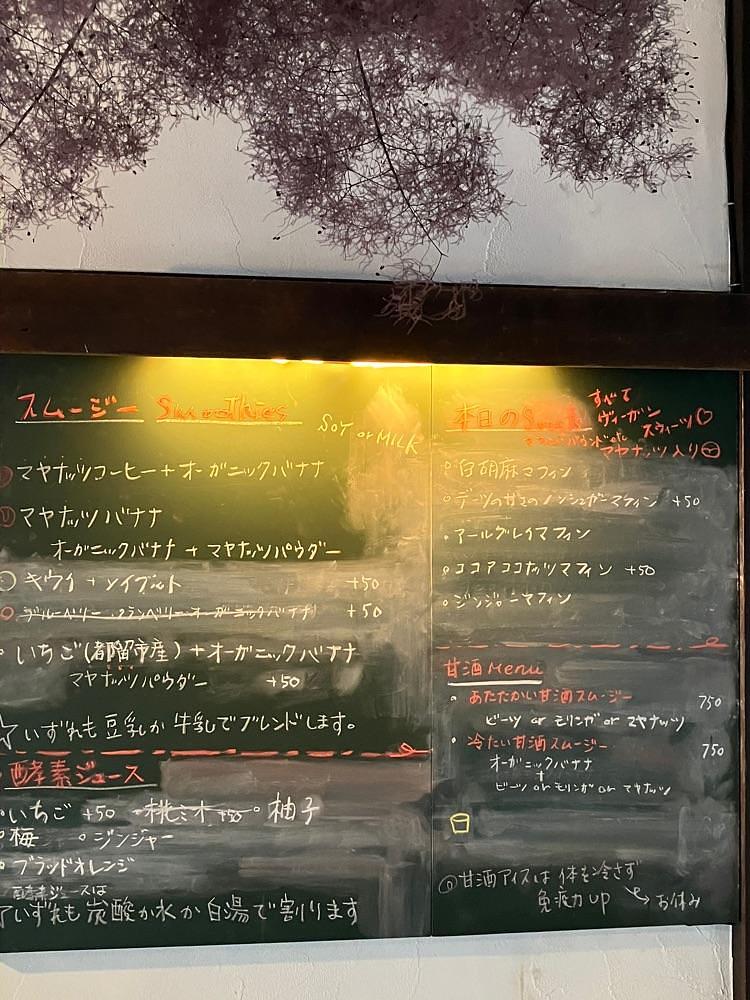 スムージー Smoothies
SOY or MILK
マヤナッツコーヒー+オーガニックバナナ
マヤナッツバナナ
オーガニックバナナ + マヤナッツパウダー
キウイ + +50
ブルーベリー クランベリー オーガニックバナナ +50
いちご(都留市産)+オーガニックバナナ
マヤナッツパウダー +50
☆いずれも豆乳か牛乳でブレンドします。
酵素ジュース
いちご +50 桃ミオ +50 柚子
梅 ジンジャー
ブラッドオレンジ
酵素ジュースは
いずれも炭酸か水か白湯で割ります
本日のSweets
すべて
ヴィーガン
スウィーツ♡
マヤナッツ入り
白胡麻マフィン
デーツの甘さのノンシュガーマフィン +50
アールグレイマフィン
ココアココナッツマフィン +50
ジンジャーマフィン
甘酒Menu
あたたかい甘酒スムージー 750
ビーツ or モリンガ or マヤナッツ
冷たい甘酒スムージー 750
オーガニックバナナ
+
ビーツ or モリンガ or マヤナッツ
甘酒アイスは体を冷さず
免疫力UP → お休み